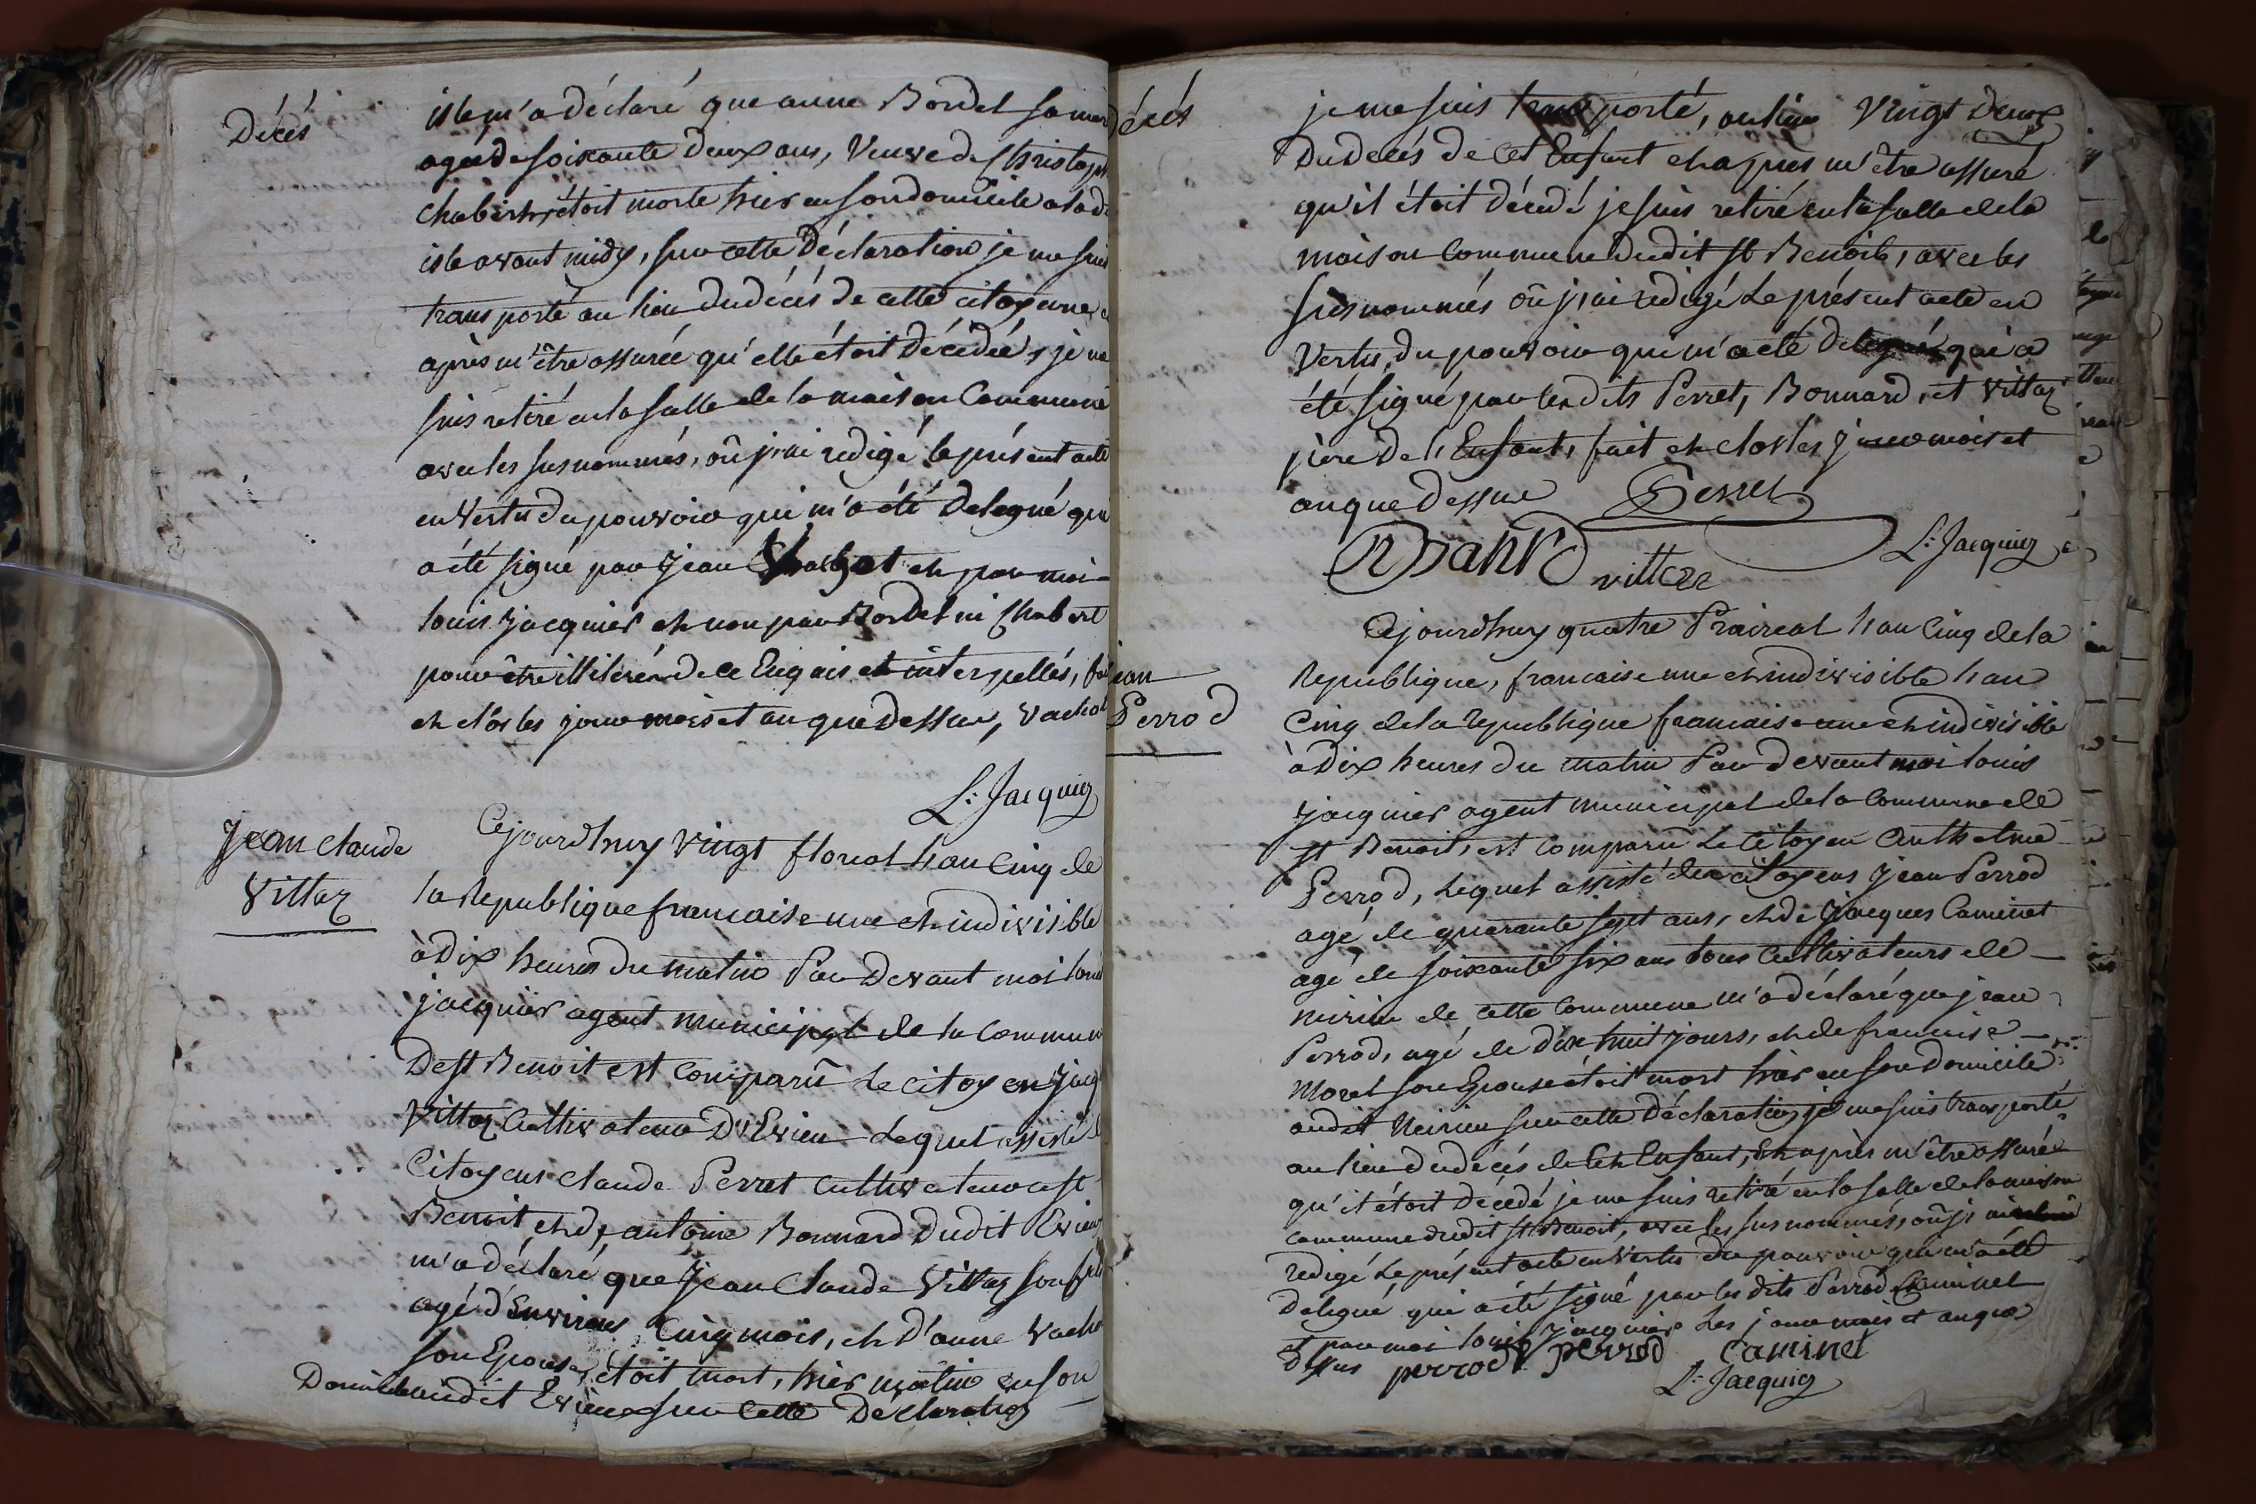 Décés
isle m'a déclaré que anne Bordel sa mer
ageé de soixante deux ans, Veuve de Christop
Chabert, étoit morte hier en son domicile a la d
isle avant midy, sur cette déclaration je me suis
transporté au lieu du décés de cette citoyenne
après m'être assurée qu'elle étoit décédée, je me
suis retiré en la salle de la maison Commune
avec les susnommés, où j'ai redigé le présent acte
en vertu du pouvoir qui m'a été delegué qui
a été signé par Jean et par moi
louis jacquier et non par Bordel ni Chabert
pour être illiterés de ce Enquis et interpellés, fa
et clos les jour mois et an que dessus, Vachot
L: Jacquier
Jean Claude
Vittoz
Cejourdhuy Vingt floreal l'an Cinq de
la Republique francaise une et indivisible
à Dix heures du matin Par Devant moi loui
jacquier agent municipal de la Commun
De st Benoit est comparu Le citoyen jacq
Vittoz Cultivateur D'Evieu Lequel assisté d
Citoyens Claude Perret cultivateur a st
Benoit et d'antoine Bonnard dudit Evieu
m'a déclaré que Jean Claude Vittoz son fils
agé d'Environ Cinq mois, et d'anne Vacho
son Epouse, étoit mort, hier matin en son
Domicile audit Evieu sur cette Déclaration
Décés
je me suis transporté, au lieu Vingt Deux
Du décés de cet Enfant et apres m'être assuré
qu'il étoit décédé je suis retiré en la salle de la
maison Commune dudit st Benoit, avec les
susnommés où j'ai redigé Le présent acte en
Vertu, du pouvoir qui m'a été delegué qui a
été signé par les dits Perret, Bonnard, et Vittoz
père de l'Enfant, fait et clos les jour mois et
an que dessus Perret
Bonard vittoz L: Jacquier
jean
Perrod
Cejourdhuy quatre Prairial l'an Cinq de la
Republique, francaise une et indivisible l'an
Cinq de la republique francaise une et indivisible
à Dix heures du matin Par devant moi louis
jacquier agent municipal de la Commune de
st Benoit, est comparu Le Citoyen Anthelme
Perrod, Lequel assisté des citoyens Jean Perrod
agé de quarante sept ans, et de Jacques Caminet
agé de soixante six ans tous Cultivateurs de
Neirieu de cette Commune m'a déclaré que jean
Perrod, agé de dix huit jours, et de francoise
Morel son Epouse étoit mort hier en son Domicile
audit Neirieu sur cette déclaration, je me suis transporté
au lieu du décés de Cet Enfant, Et après m'être assuré
qu'il étoit décédé je me suis retiré en la salle de la maison
commune dudit st Benoit, avec les susnommés, où j'ai
redigé Le présent acte en vertu du pouvoir qui m'a été
delegué qui a été signé par les dits Perrod Caminet
et par moi louis jacquier Les jour mois et an que
dessus perrod perrod caminet
L: Jacquier